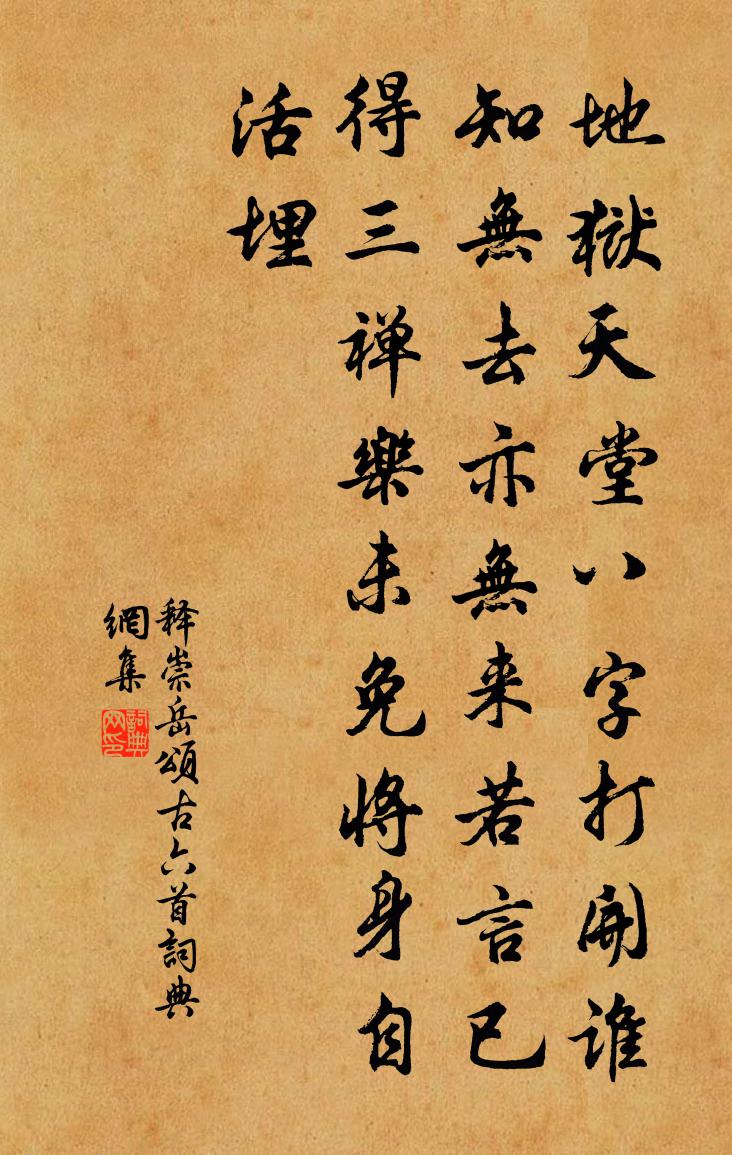 地獄天堂八字打開誰
知無去亦無来若言已
得三禅樂未免将身自
活埋
释崇岳頌古六首詞典
網集
詞典
网印